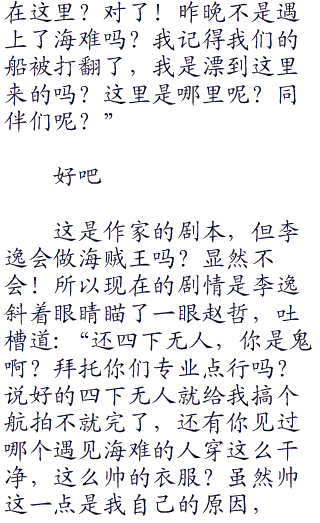 在这里？对了！昨晚不是遇
上了海难吗？我记得我们的
船被打翻了，我是漂到这里
来的吗？这里是哪里呢？同
伴们呢？”
好吧
这是作家的剧本，但李
逸会做海贼王吗？显然不
会！所以现在的剧情是李逸
斜着眼睛瞄了一眼赵哲，吐
槽道：“还四下无人，你是鬼
啊？拜托你们专业点行吗？
说好的四下无人就给我搞个
航拍不就完了，还有你见过
哪个遇见海难的人穿这么干
净，这么帅的衣服？虽然帅
这一点是我自己的原因，